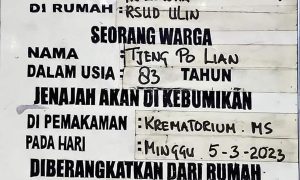 DI RUMAH : RSUD ULIN
SEORANG WARGA
NAMA : TJENG PO LIAN
DALAM USIA : 83 TAHUN
JENAJAH AKAN DI KEBUMIKAN
DI PEMAKAMAN : KREMATORIUM. MS
PADA HARI : MINGGU 5-3-2023
DIBERANGKATKAN DARI RUMAH